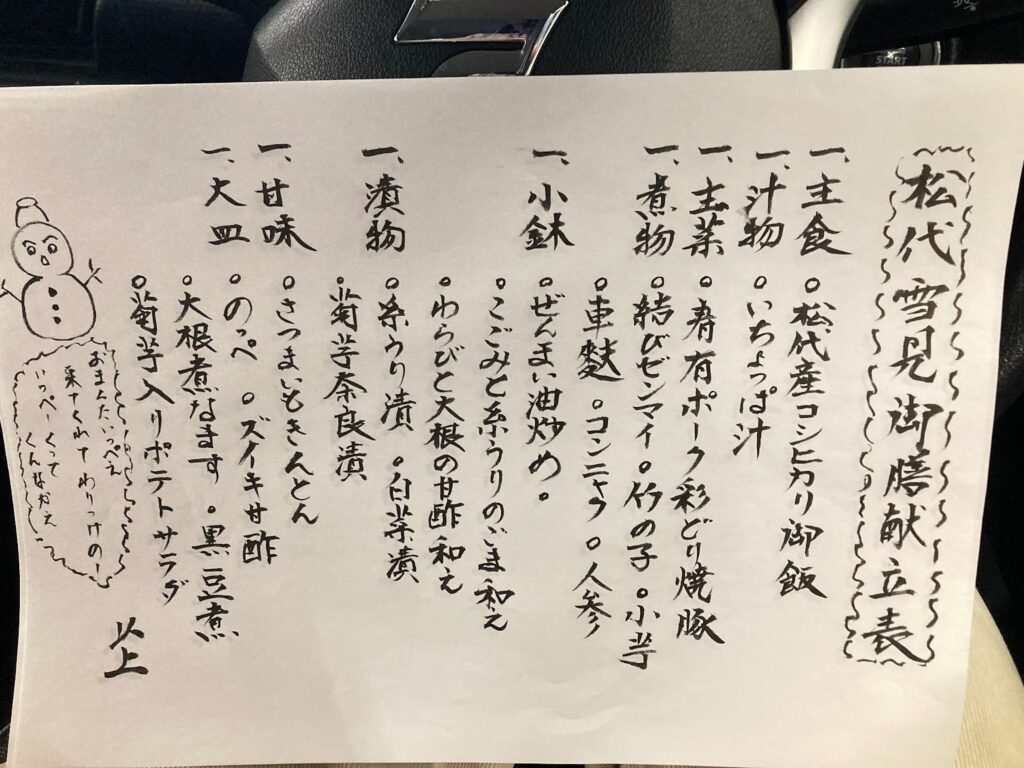 松代雪見御膳献立表
一、主食 ○松代産コシヒカリ御飯
一、汁物 ○いちょっぱ汁
一、主菜 ○肴有ポーク彩どり焼豚
一、煮物 ○結びゼンマイ○竹の子○小芋
○車麩○コンニャク○人参
一、小鉢 ○ぜんまい油炒め○
○こごみと糸うりのごま和え
○わらびと大根の甘酢和え
一、漬物 ○糸うり漬○白菜漬
○菊芋奈良漬
一、甘味 ○さつまいもきんとん
一、大皿 ○のっぺ○ズイキ甘酢
○大根煮なます○黒豆煮
○菊芋入りポテトサラダ
以上
おまんたいっぺえ
来てくれてわりっけのー
いっぺーくって
くんなかえ
START